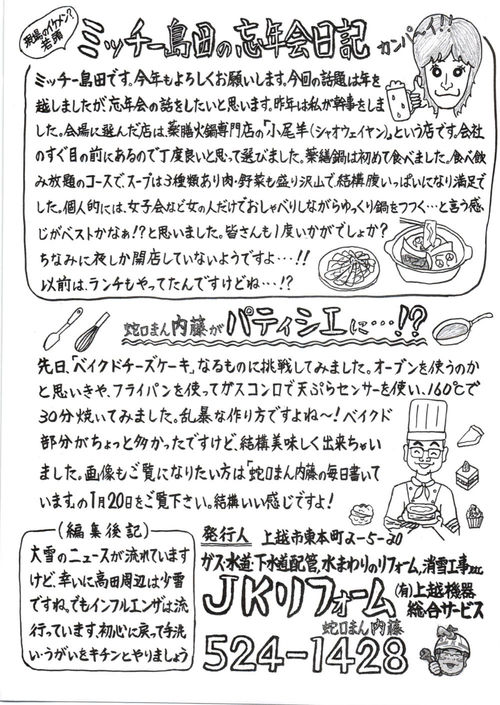 現場のイケメン?
若頭
ミッチー島田の忘年会日記
カンパ〜イ!!
ミッチー島田です。今年もよろしくお願いします。今回の話題は年を
越しましたが忘年会の話をしたいと思います。昨年は私が幹事をしま
した。会場に選んだ店は、薬膳火鍋専門店の「小尾羊(シャオウェイヤン)」という店です。会社
のすぐ目の前にあるので丁度良いと思って選びました。薬膳鍋は初めて食べました。食べ飲
み放題のコースで、スープは3種類あり肉・野菜も盛り沢山で、結構腹いっぱいになり満足で
した。個人的には、女子会など女の人だけでおしゃべりしながらゆっくり鍋をつつく…と言う感
じがベストかなぁ!?と思いました。皆さんも1度いかがでしょか?
ちなみに夜しか開店していないようですよ…!!
以前は、ランチもやってたんですけどね…!?
蛇口まん内藤がパティシエに…!?
先日、「ベイクドチーズケーキ」なるものに挑戦してみました。オーブンを使うのか
と思いきや、フライパンを使ってガスコンロで天ぷらセンサーを使い、160℃で
30分焼いてみました。乱暴な作り方ですよね〜!ベイクド
部分がちょっと多かったですけど、結構美味しく出来ちゃい
ました。画像もご覧になりたい方は「蛇口まん内藤の毎日書いて
います。」の1月20日をご覧下さい。結構いい感じですよ!
(編集後記)
大雪のニュースが流れています
けど、幸いに高田周辺は少雪
ですね。でもインフルエンザは流
行っています、初心に戻って手洗
い・うがいをキチンとやりましょう
発行人 上越市東本町2-5-20
ガス・水道・下水道配管、水まわりのリフォーム、消雪工事etc
JKリフォーム (有)上越機器
総合サービス
蛇口まん内藤
524-1428